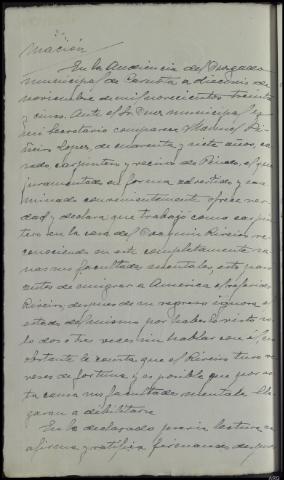 mación
En la Audiencia del Juzgado
municipal de a dieciseis de
noviembre de mil novecientos treinta
y cinco. Ante el Sr Juez municipal y
mi Secretario comparece Manuel Pi-
ñeiro Lopez, de cuarenta y siete años, ca-
sado, carpintero y vecino de el que
juramentado en forma advertido y con-
minado convenientemente ofrece ver-
dad y declara que trabajó como carpin-
tero en la casa del Riveiro re-
conociendo en este completamente sa-
nas sus facultades mentales, esto
antes de emigrar a America el referido
Riveiro, despues de su regreso ignora el
estado del mismo por haberlo visto so-
lo dos o tres veces sin hablar con él no
obstante le consta que el Riveiro tuvo re-
veses de fortuna y es posible que por es-
ta causa sus facultades mentales lle-
garan a debilitarse
En lo declarado previa lectura se
afirma y ratifica firmando despues